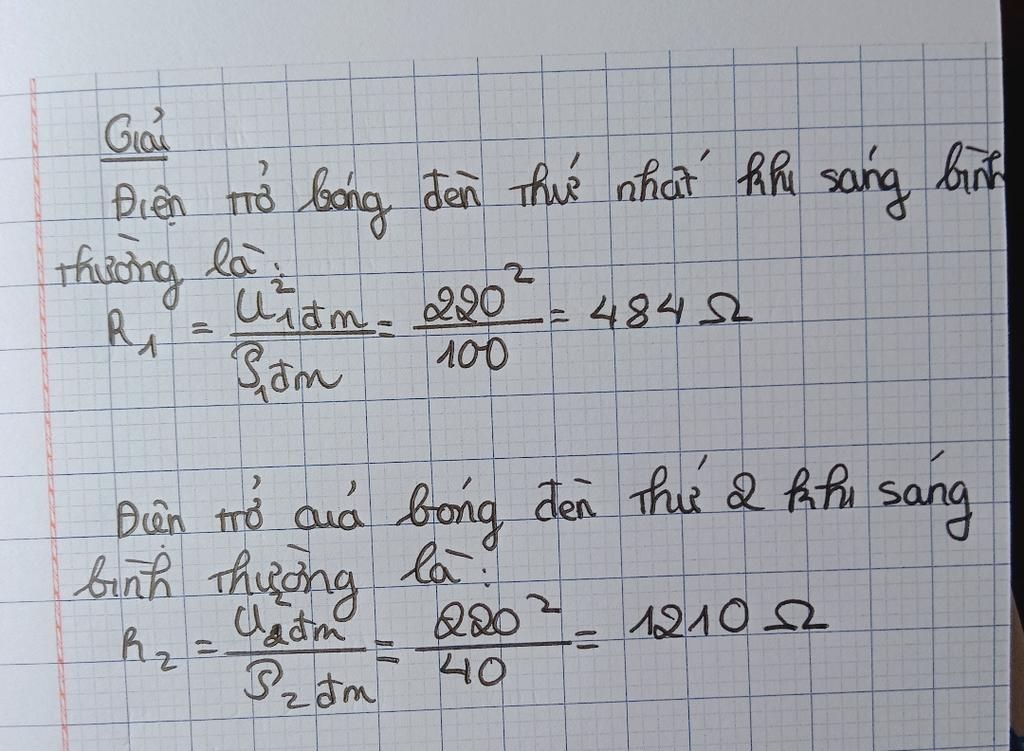 Giải
Điện trở bóng đèn thứ nhất khi sáng bình
thường là:
R₁ = U²₁đm / P₁đm = 220² / 100 = 484 Ω
Điện trở quả bóng đèn thứ 2 khi sáng
bình thường là:
R₂ = U²₂đm / P₂đm = 220² / 40 = 1210 Ω